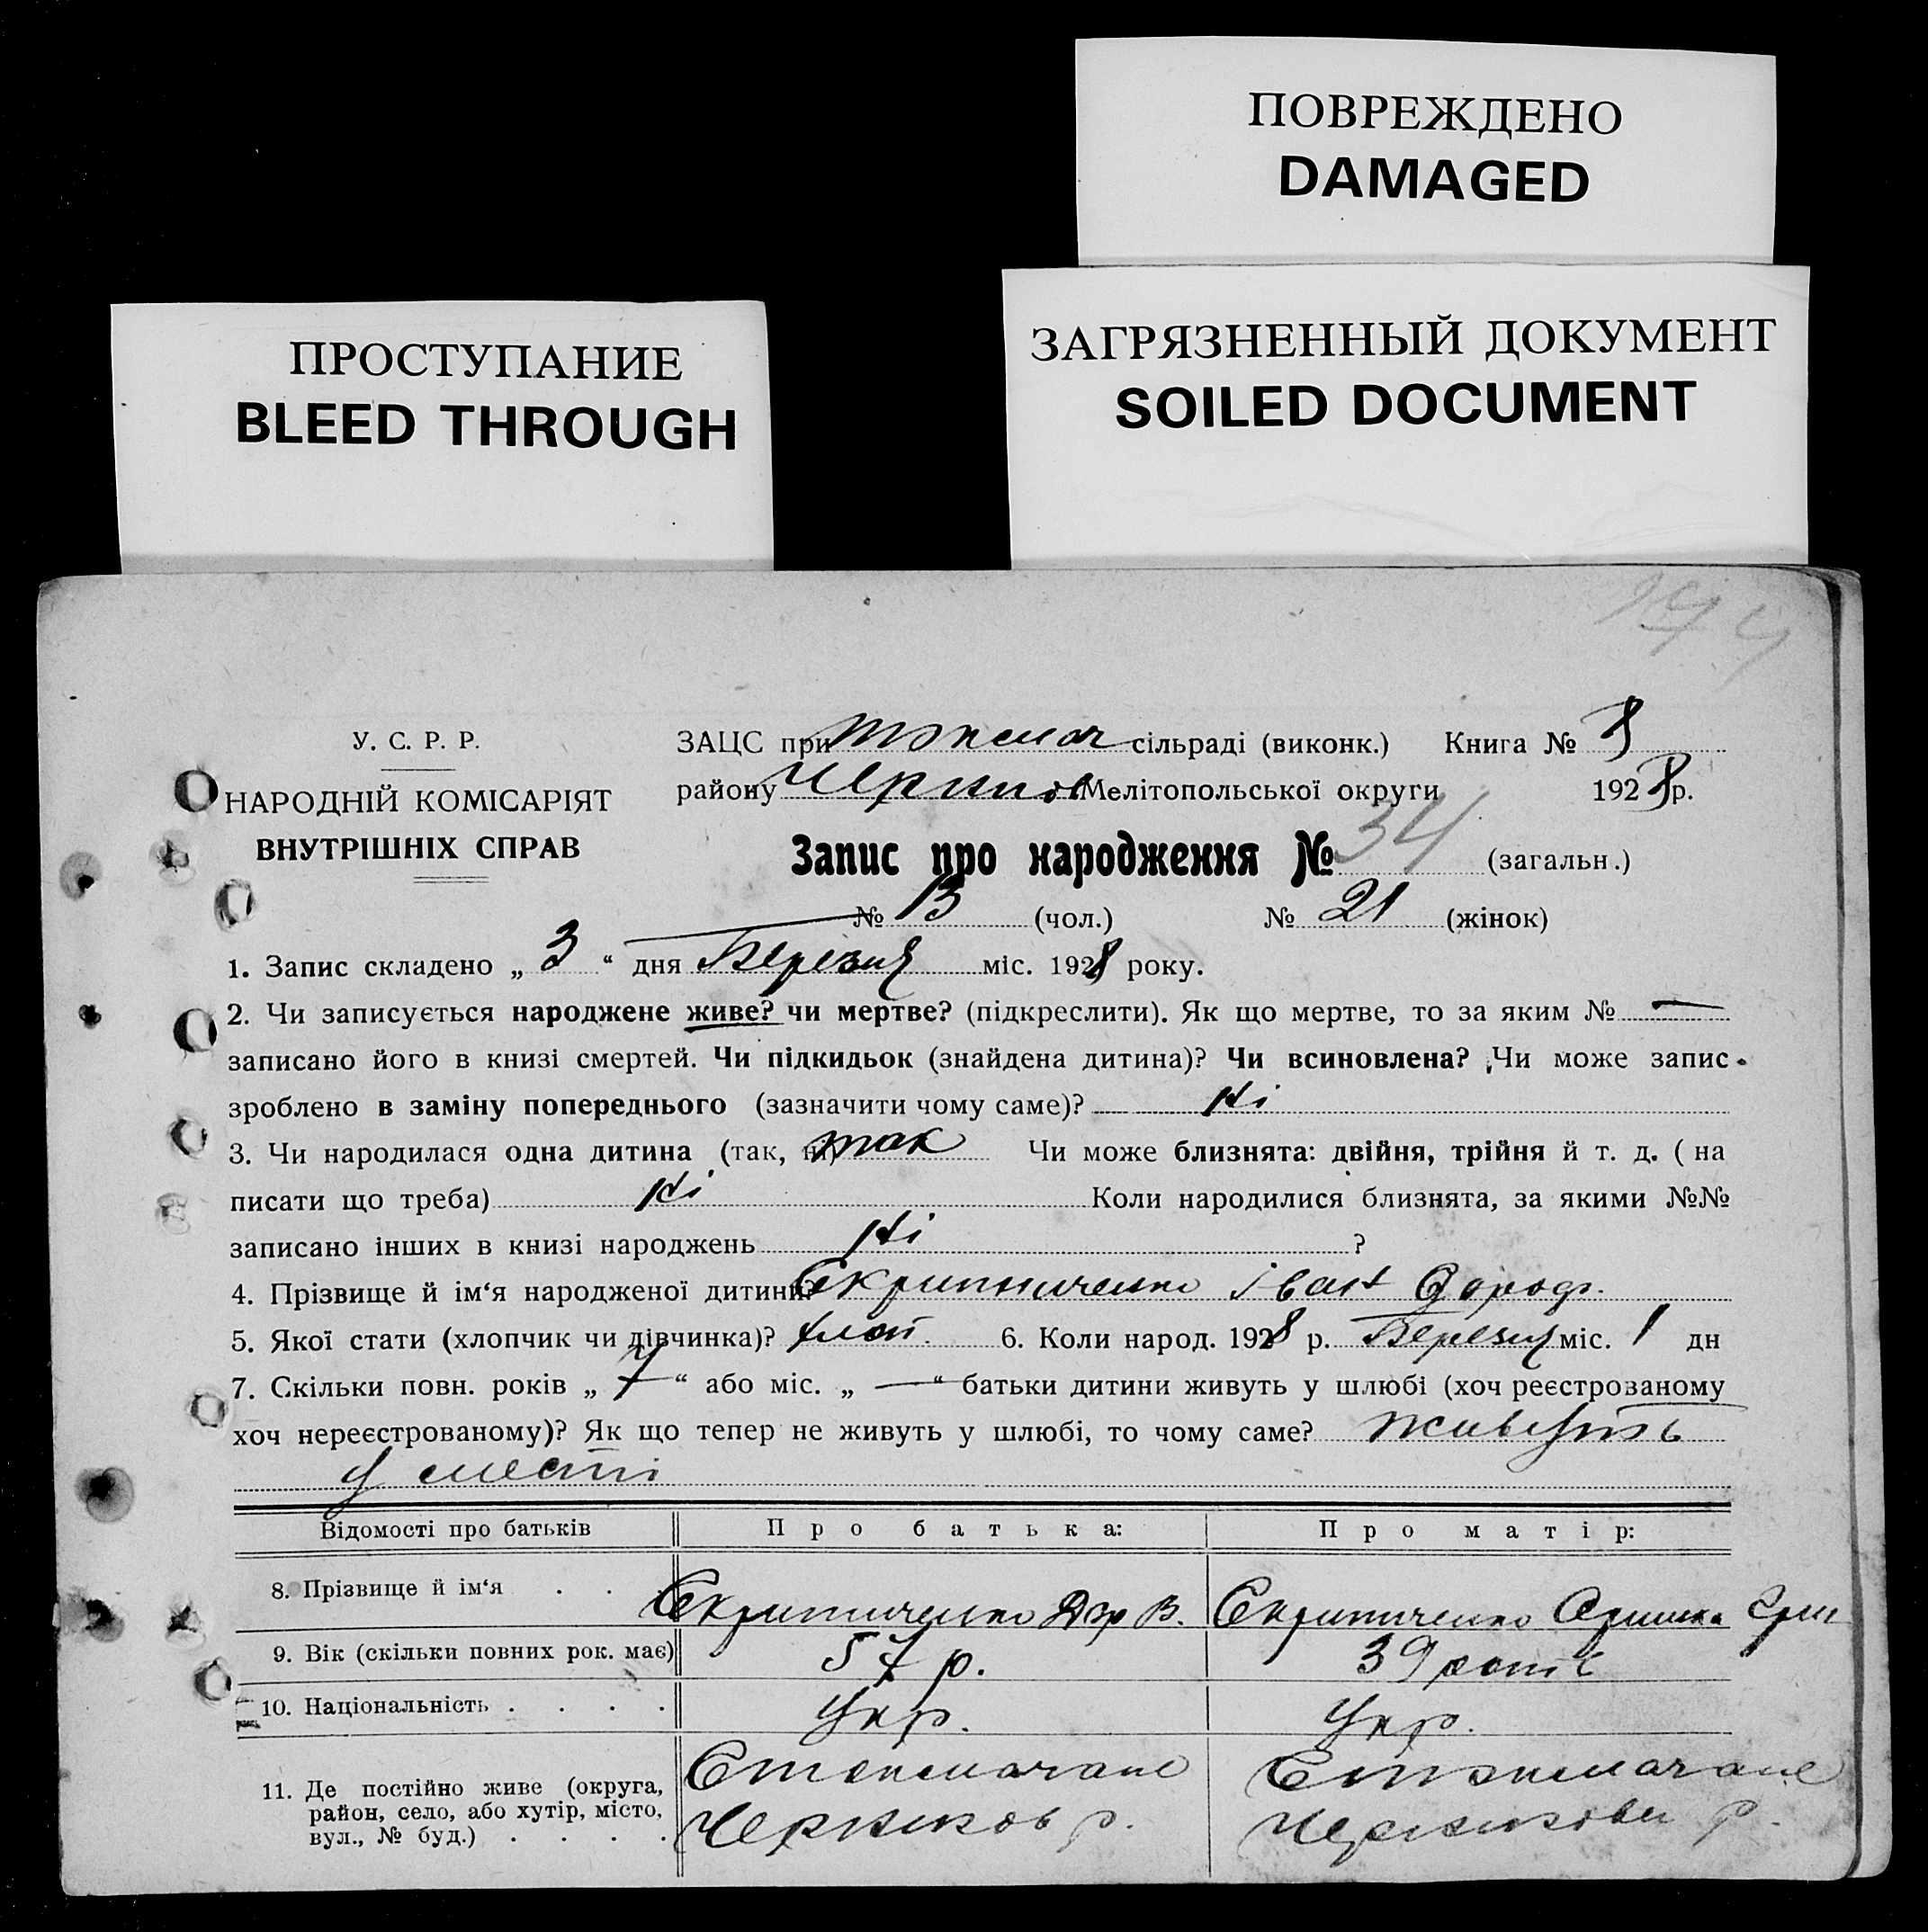 ПОВРЕЖДЕНО
DAMAGED
ПРОСТУПАНИЕ
BLEED THROUGH
ЗАГРЯЗНЕННЫЙ ДОКУМЕНТ
SOILED DOCUMENT
У. С. Р. Р.
НАРОДНІЙ КОМІСАРІЯТ
ВНУТРІШНІХ СПРАВ
ЗАЦС при Токмач сільраді (виконк.) Книга № 8
району Мелітопольської округи 1928 р.
Запис про народження № 34 (загальн.)
№ 13 (чол.) № 21 (жінок)
1. Запис складено „ 3 “ дня Березня міс. 1928 року.
2. Чи записується народжене живе? чи мертве? (підкреслити). Як що мертве, то за яким № —
записано його в книзі смертей. Чи підкидьок (знайдена дитина)? Чи всиновлена? Чи може запис
зроблено в заміну попереднього (зазначити чому саме)? Ні
3. Чи народилася одна дитина (так, ні) так Чи може близнята: двійня, трійня й т. д. ( на
писати що треба) Ні Коли народилися близнята, за якими №№
записано інших в книзі народжень Ні ?
4. Прізвище й ім‘я народженої дитини? Скрипниченко Іван
5. Якої стати (хлопчик чи дівчинка)? хлоп. 6. Коли народ. 1928 р. Березня міс. 1 дн
7. Скільки повн. років „ 7 “ або міс. „ — “ батьки дитини живуть у шлюбі (хоч реєстрованому
хоч нереєстрованому)? Як що тепер не живуть у шлюбі, то чому саме? живуть
у
Відомості про батьків П р о б а т ь к а: П р о м а т і р:
8. Прізвище й ім‘я . . . Скрипниченко В. Скрипниченко
9. Вік (скільки повних рок. має) 57 р. 39 років
10. Національність . . . . Укр. Укр.
11. Де постійно живе (округа,
район, село, або хутір, місто,
вул., № буд.) . . . .
р. р.